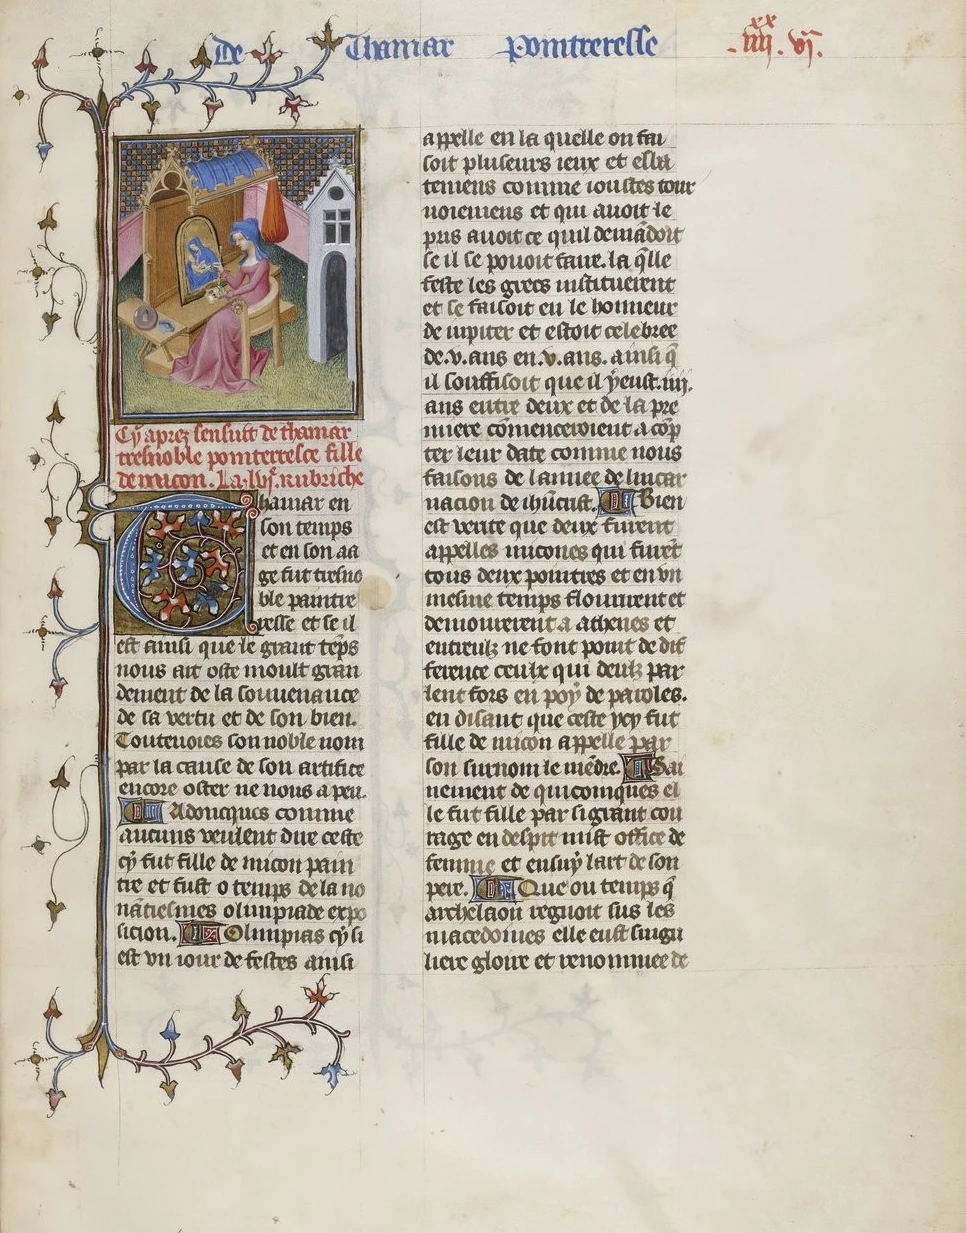 De Thamar Pointeresse
.iiii.xx vj.
Cy aprez sensuit de thamar
tresnoble pointeresce fille
de micon. La .lvj. rubriche
Thamar en
son temps
et en son aa
ge fut tresno
ble paintre
resse et se il
est ainsi que le grant tẽps
nous ait oste moult gran
dement de la souuenance
de sa vertu et de son bien.
Touteuoies son noble nom
par la cause de son artifice
encore oster ne nous a peu.
Adoncques comme
aucuns veulent dire ceste
cy fut fille de micon pain
tre et fust o temps de la no
nãtiesmes olimpiade expo
sicion. Olimpias cy si
est vn iour de festes ainsi
appelle en la quelle on fai
soit pluseurs ieux et esba
temens comme ioustes tour
noiemens et qui auoit le
pris auoit ce quil demãdoit
se il se pouoit faire. la q̃lle
feste les grecs instituerent
et se faisoit en le honneur
de iupiter et estoit celebree
de .v. ans en .v. ans. ainsi q̃
il souffisoit que il y eust .iiij.
ans entre deux et de la pre
miere cõmenceroient a cõp
ter leur date comme nous
faisons de lannee de lincar
nacion de ihũcrist. Bien
est verite que deux furent
appelles micones qui furẽt
tous deux pointres et en vn
mesme temps flourirent et
demourerent a athenes et
entreulz ne font point de dif
ference ceulx qui deulz par
lent fors en poy de paroles.
en disant que ceste ycy fut
fille de micon appelle par
son surnom le mẽdre. Sai
nement de quiconques el
le fut fille par si grant cou
rage en despit mist office de
femme et ensuy lart de son
pere. Que ou temps q̃
archelaon regnoit sus les
macedonies elle eust singu
liere gloire et renommee de